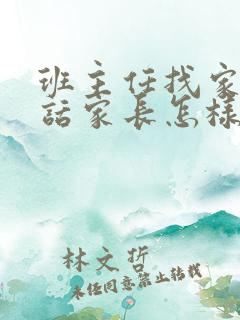 班主任找家
话家长怎样
林文哲
未经同意禁止转载